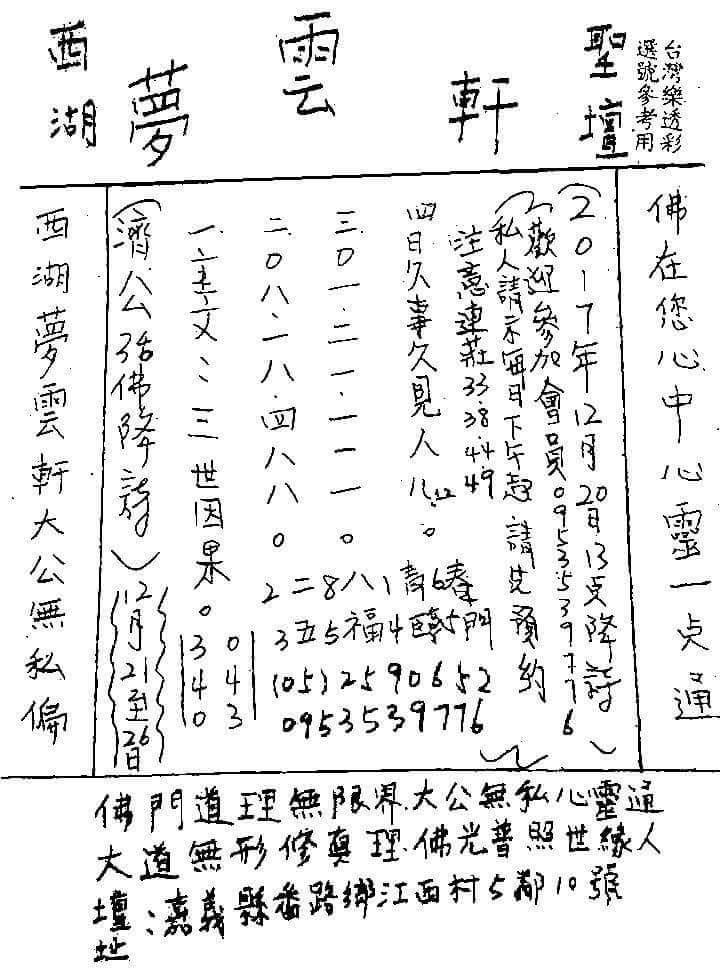 台灣樂透彩
選號參考用
西湖 夢雲軒 聖壇
佛在您心中心靈一点通
(2017年12月20日13点降詩)
(歡迎參加會員0953539776
私人請示每日下午起請先預約)
注意連莊33.38.44.49
四日久事久見人
三0一.二一.一一一。
二.0八.二八.四八八。
三世因果。
(濟公活佛降詩)
12月21至26日
西湖夢雲軒大公無私偏
043
340
(05)2590652
0953539776
佛門道理無限界.大公無私心靈通
大道無形修真理.佛光普照世緣人
壇址:嘉義縣番路鄉江西村5鄰10號